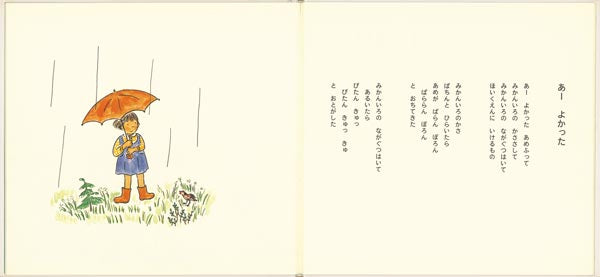 あー よかった
あー よかった あめふって
みかんいろの かささして
みかんいろの ながぐつはいて
ほいくえんに いけるもの
みかんいろのかさ
ぱちんと ひらいたら
あめが ぱらん ぽろん
ぱららん ぽろん
と おちてきた
みかんいろの ながぐつはいて
あるいたら
ぴたん きゅっ
ぴたん きゅっ きゅ
と おとがした